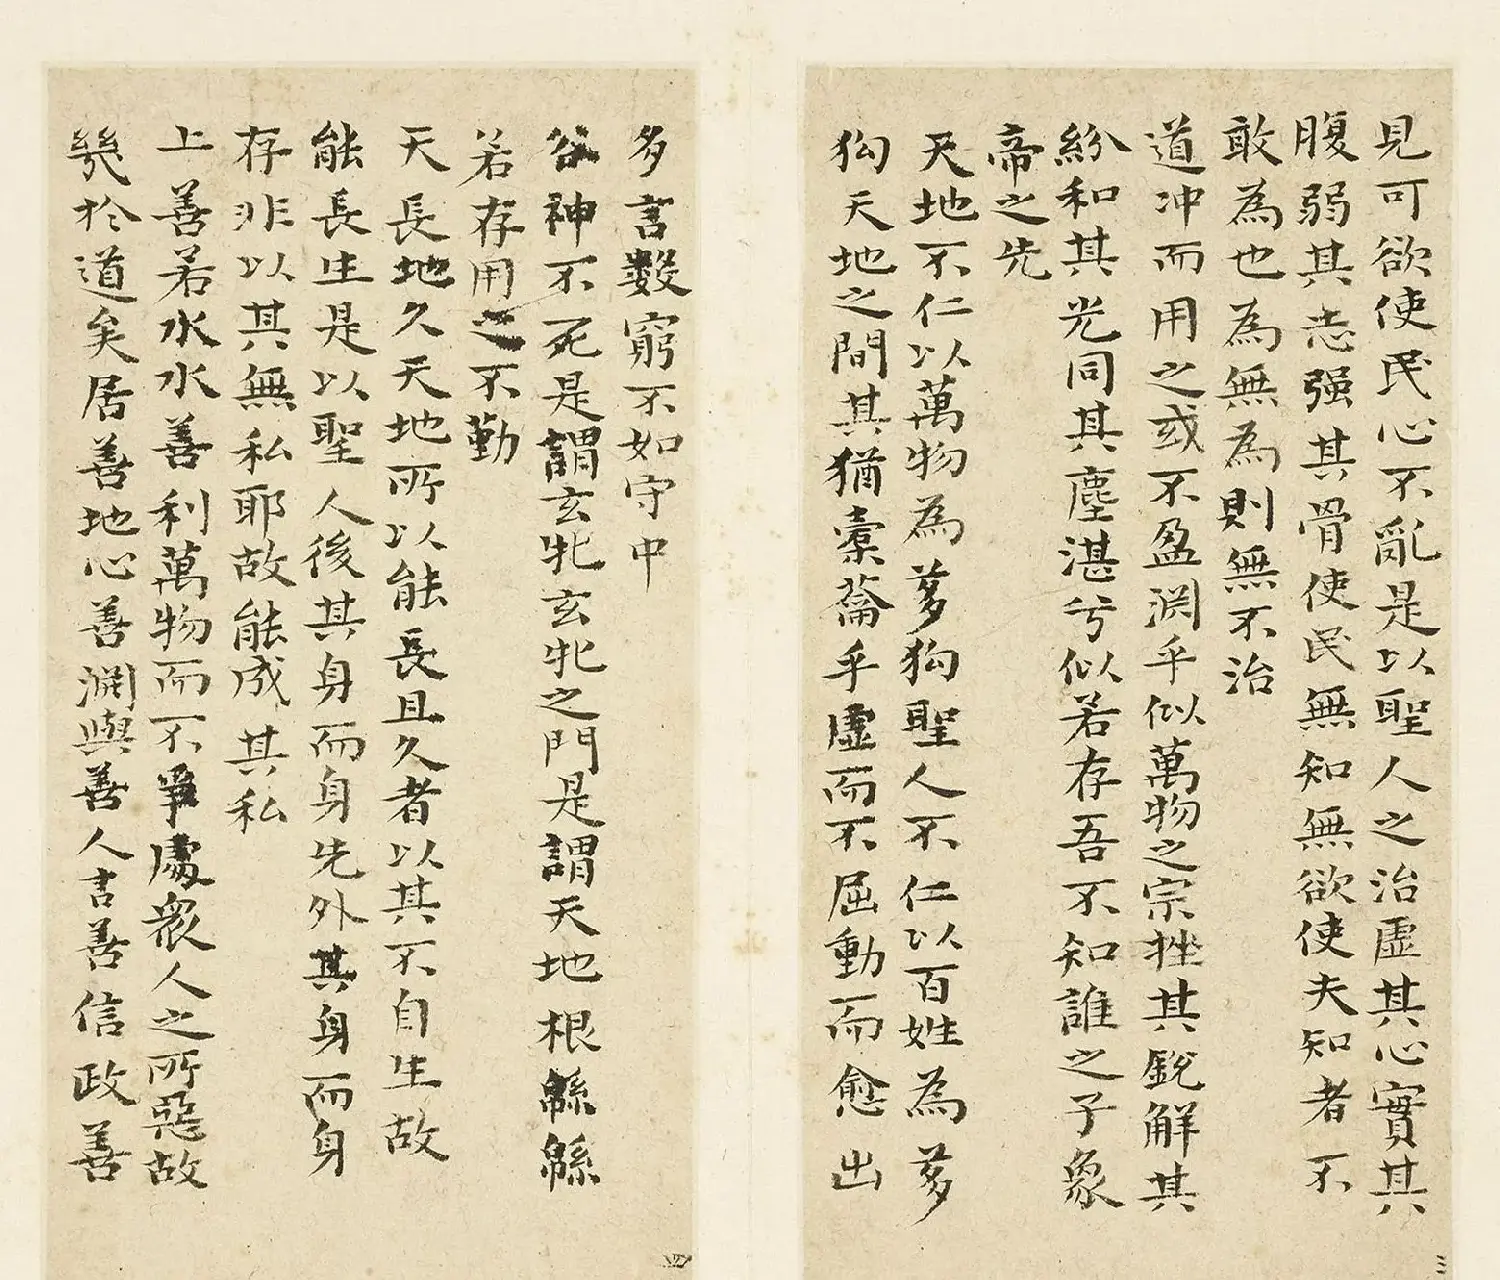 見可欲使民心不亂是以聖人之治虛其心實其
腹弱其志强其骨使民無知無欲使夫知者不
敢為也為無為則無不治
道冲而用之或不盈淵乎似萬物之宗挫其銳解其
紛和其光同其塵湛兮似若存吾不知誰之子象
帝之先
天地不仁以萬物為芻狗聖人不仁以百姓為芻
狗天地之間其猶橐蘥乎虛而不屈動而愈出
三
多言數窮不如守中
谷神不死是謂玄牝玄牝之門是謂天地根緜緜
若存用之不勤
天長地久天地所以能長且久者以其不自生故
能長生是以聖人後其身而身先外其身而身
存非以其無私耶故能成其私
上善若水水善利萬物而不爭處衆人之所惡故
幾於道矣居善地心善淵與善人言善信政善
四